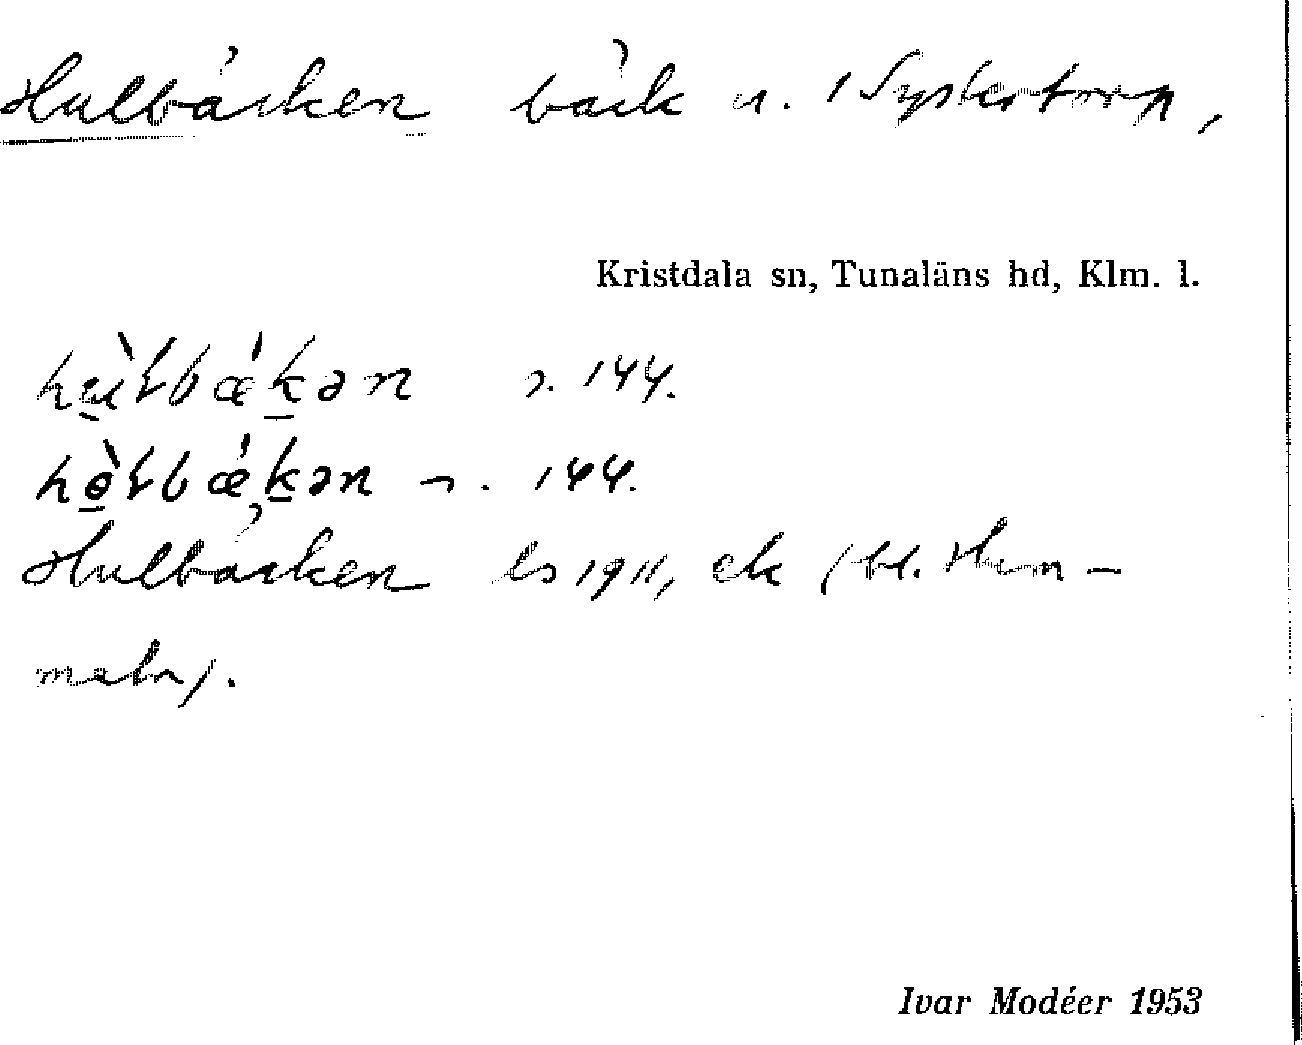 Hulbäcken bäck n. /Systertorp,
Kristdala sn, Tunaläns hd, Klm. l.
s. 144.
s. 144.
Hulbäcken ls 1911, ek (bl. Hum-
meln).
Ivar Modéer 1953